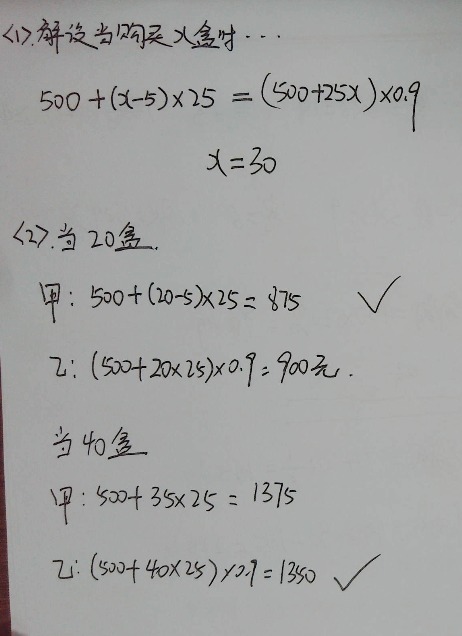 <1>.解设当购买x盒时···
500+(x-5)×25=(500+25x)×0.9
x=30
<2>.当20盒.
甲:500+(20-5)×25=875 ✓
乙:(500+20×25)×0.9=900元.
当40盒
甲:500+35×25=1375
乙:(500+40×25)×0.9=1350 ✓